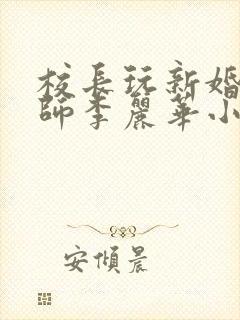 校長玩新婚
師李麗華小
安傾晨